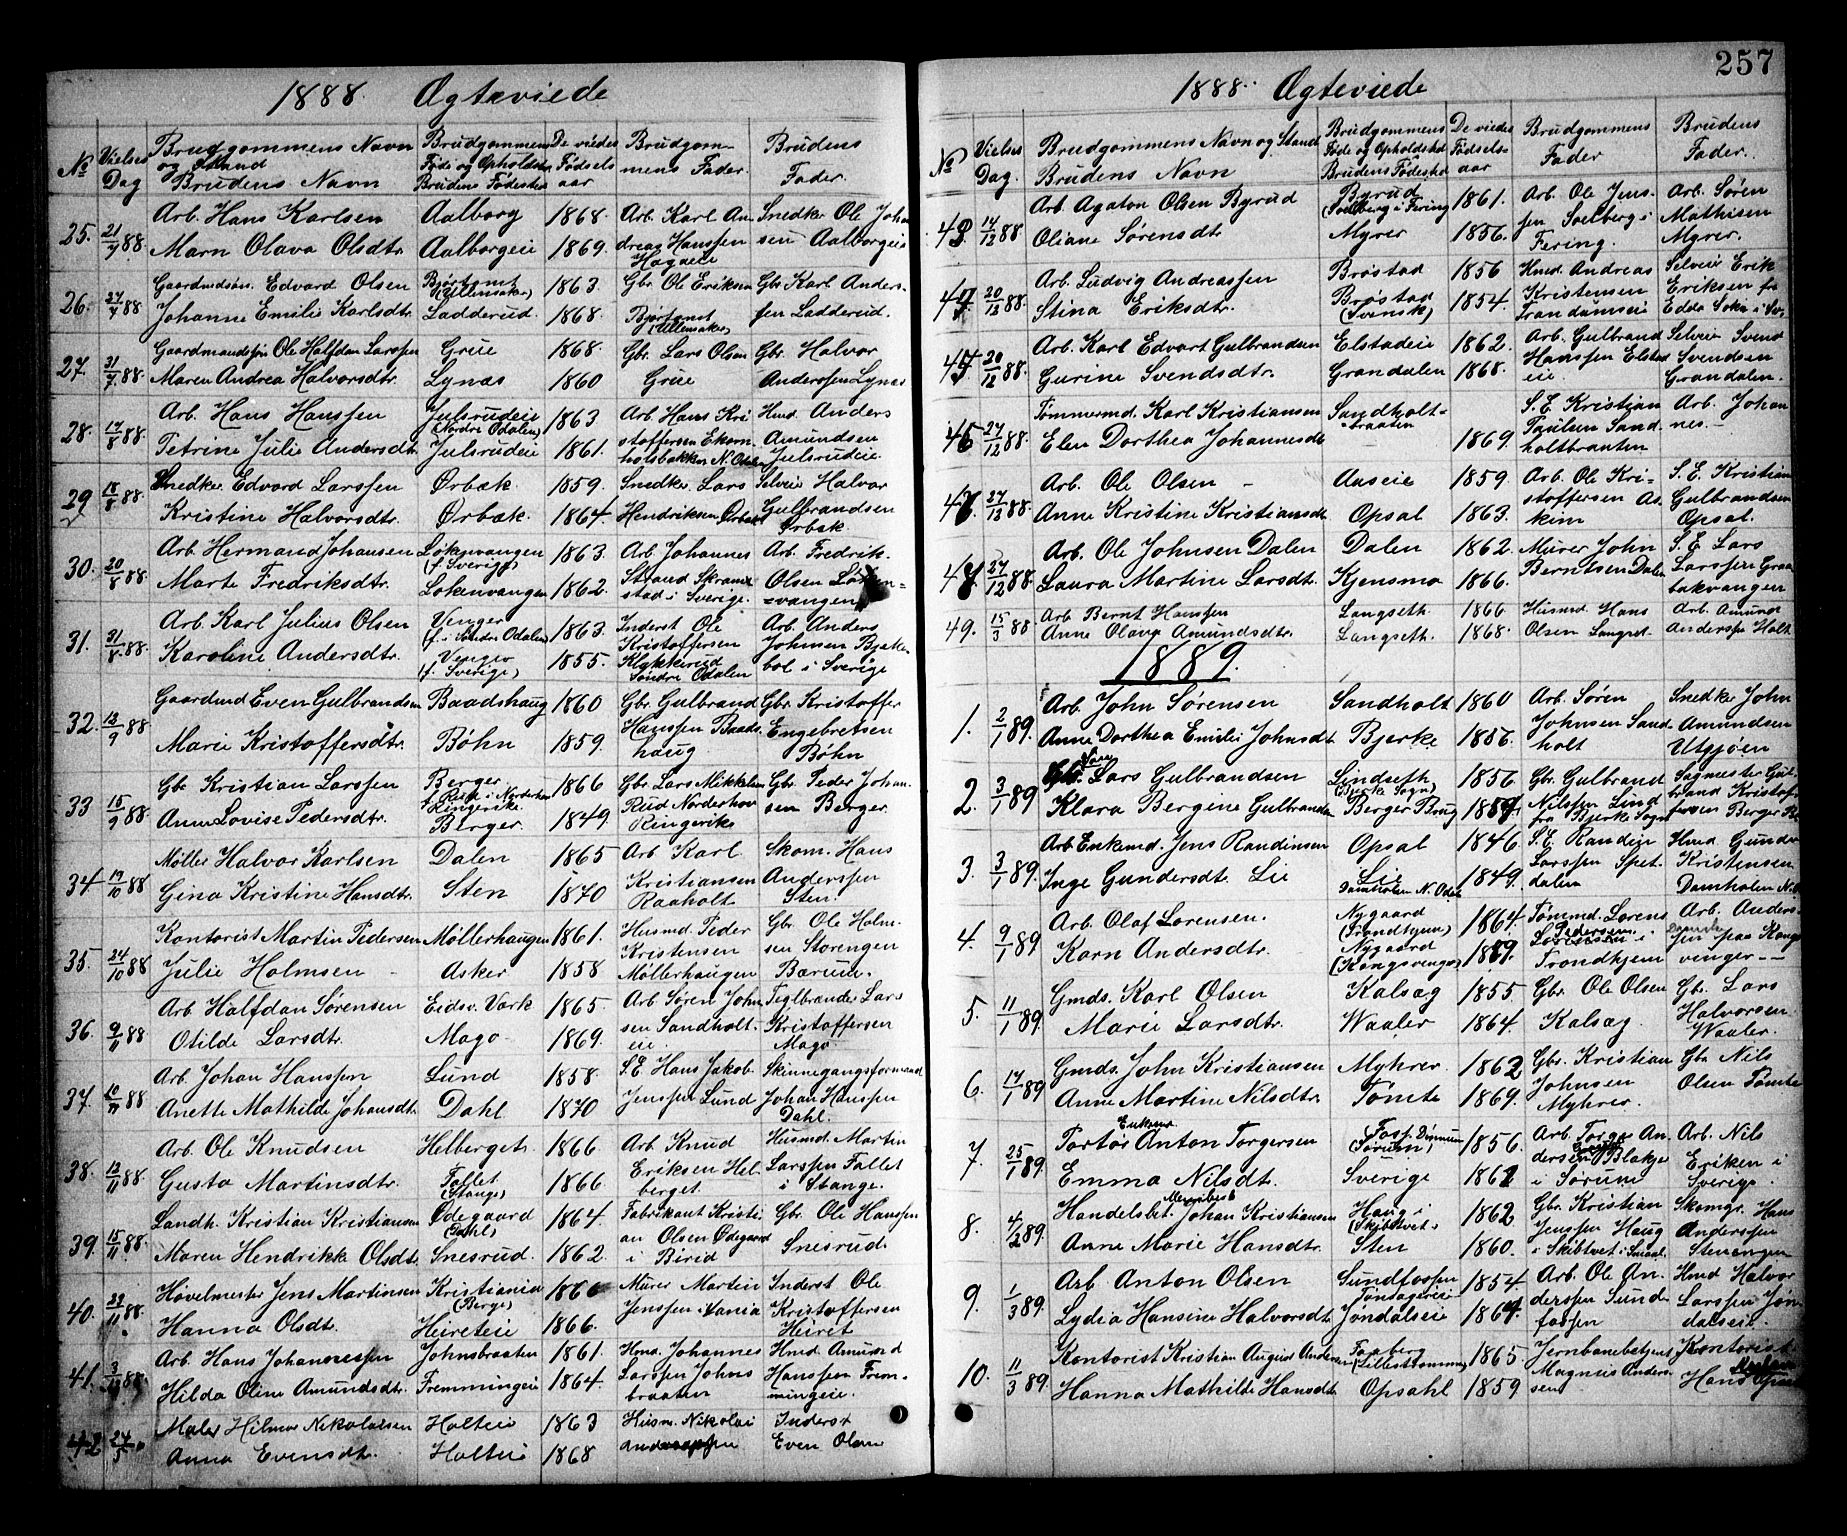 257
1888. Ægteviede
№ Vielses Dag Brudgommens Navn og Stand Brudens Navn Brudgommens Føde og Opholdsst. Brudens Fødested De viedes Fødsels aar Brudgommens Fader. Brudens Fader.
25. 21/7 88. Arb. Hans Karlsen Aalborg 1868. Arb. Karl Andreas Hanssen Hagaeie Snedker Ole Johansen Aalborgeie
Marn Olava Olsdtr. Aalborgeie 1869.
26. 27/7 88. Gaardmdsøn. Edvard Olsen (Ullensaker) 1863. Gbr. Ole Eriksen (Ullensaker) Gbr. Karl Anderssen Ladderud.
Johanne Emilie Karlsdtr. Ladderud. 1868.
27. 31/7 88. Gaardmandssøn Ole Halfdan Larssen Grue 1868. Gbr. Lars Olsen Grue Gbr. Halvor Anderssen Lynæs
Maren Andrea Halvorsdtr. Lynæs 1860
28. 17/8 88. Arb. Hans Hanssen Julsrudeie (Nordre Odalen) 1863 Arb. Hans Kristoffersen Ekornholsbakken N. Odalen Hmd. Anders Amundsen Julsrudeie
Petrine Julie Andersdtr. Julsrudeie 1861.
29 18/8 88. Snedker Edvard Larssen Ørbæk 1859. Snedker Lars Hendriksen Ørbæk Selveier Halvor Gulbrandsen Ørbæk
Kristine Halvorsdtr. Ørbæk. 1864.
30. 20/8 88. Arb. Hermand Johansen Løkenvangen (f. Sverige) 1863. Arb. Johannes Strand Skramstad i Sverige. Arb. Fredrik Olsen Løkenvangen
Marte Fredriksdtr. Lokenvangen 1862.
31. 31/8 88. Arb. Karl Julius Olsen Venger (f. i Søndre Odalen) 1863. Inderst Ole Kristoffersen Klokkerud Søndre Odalen Arb. Anders Johnsen Bjekebol i Sverige
Karoline Andersdtr. Venger (f. Sverige) 1855.
32. 13/9 88. Gaardmd Even Gulbrandsen Baadshaug 1860 Gbr. Gulbrand Hanssen Baadshaug. Gbr. Kristoffer Engebretsen Bøhn
Marie Kristoffersdtr. Bøhn 1859.
33 15/9 88. Gbr. Kristian Larssen Berger. f. Rud i Norderhov Ringerike. 1866 Gbr. Lars Mikkelsen Rud Norderhov Ringerike Gbr. Peder Johansen Berger.
Anne Lovise Pedersdtr. Berger. 1849.
34 19/10 88 Møller Halvor Karlsen Dalen 1865 Arb Karl Kristiansen Raaholt Skom. Hans Anderssen Sten.
Gina Kristine Hansdtr. Sten 1870
35. 24/10 88 Kontorist Martin Pedersen Møllerhaugen 1861. Husmd. Peder Kristensen Møllerhaugen Gbr. Ole Holmsen Storengen Bærum.
Julie Holmsen - Asker 1858
36. 9/11 88 Arb. Halfdan Sørensen Eidsv. Værk 1865. Arb Søren Johnsen Sandholteie. Teglbrænder Lars Kristoffersen Magø
Otilde Larsdtr. Magø 1869.
37. 10/11 88 Arb. Johan Hanssen Lund 1858. S.E. Hans Jakob Jenssen Lund Skinnegangsformand Johan Hanssen Dahl.
Anette Mathilde Johansdtr. Dahl 1870
38. 13/11 88. Arb. Ole Knudsen Helberget. 1866 Arb. Knud Eriksen Helberget. Husmd. Martin Larssen Fallet i Stange.
Gusta Martinsdtr. Fallet (Stange) 1866.
39. 15/11 88. Landh. Kristian Kristiansen Ødegaard (Dahl) 1864. Fabrikant Kristian Olsen Ødegaard i Birid Gbr. Ole Hanssen Snesrud.
Maren Hendrikke Olsdtr. Snesrud. 1862.
40. 23/11 88. Høvelmester Jens Martinsen Kristiania (Berge) 1866 Murer Martin Jenssen Inderst Ole Kristoffersen Heiret
Hanna Olsdtr. Heireteie 1866.
41. 88. Arb. Hans Johannessen Johnsbraaten 1861. Hmd. Johannes Larssen Johnsbraaten Hmd. Amund Hanssen Fremmingeie.
Hilda Oline Amundsdtr. Fremmingeie 1864.
42 Maler Hilmar Nikolaisen Holteie 1863 Husm. Nikolai Anderssen Inderst Even Olsen
Anna Evensdtr. Holteie 1868
1888. Ægteviede
№ Vielses Dag. Brudgommens Navn og Stand Brudens Navn Brudgommens Føde og Opholdsted Brudens Fødested De viedes Fødselsaar Brudgommens Fader Brudens Fader.
43. 14/12 88 Arb. Agaton Olsen Byrud Byrud (Soelberg i Fering) 1861. Arb. Ole Jenssen Soelberg i Fering. Arb. Søren Mathisen Myrer.
Oliane Sørensdtr. Myrer 1856.
44. 20/12 88. Arb. Ludvig Andreassen Brøstad 1856 Hmd. Andreas Kristensen Trandumseie Selveier Erik Eriksen fra Edda Sokn i
Stina Eriksdtr. Brøstad (Svensk) 1854.
45. 20/12 88. Arb. Karl Edvart Gulbrandsen Elstadeie 1862. Arb. Gulbrand Hanssen Elstadeie. Selveier Svend Svendsen Grandalen.
Gurine Svendsdtr. Grandalen 1868.
46 27/12 88. Tømmermd. Karl Kristiansen Sandholtbraaten S.E. Kristian Paulsen Sandholtbraaten Arb. Johannes.
Elen Dorthea Johannesdtr. 1869.
47. 27/12 88. Arb. Ole Olsen - Aaseie 1859. Arb. Ole Kristoffersen Askim S.E. Kristian Gulbrandsen Opsal.
Anne Kristine Kristiansdtr Opsal 1863.
48. 27/12 88. Arb. Ole Johnsen Dalen Dalen 1862. Murer John Berntsen Dalen S.E. Lars Larssen Graabakvangen
Laura Martine Larsdtr. Kjensmo 1866.
49. 15/3 88 Arb Bernt Hanssen Langseth 1866 Husmd. Hans Olsen Langset. Arb. Amund Anderssen Holt
Anne Olava Amundsdtr. Langseth. 1868.
1889.
1. 2/1 89. Arb. John Sørensen Sandholt 1860 Arb. Søren Johnsen Sandholt Snedker John Amundsen Utsjøen
Anne Dorthea Emilie Johnsdtr Bjerke 1856.
2. 3/1 89 Lars Gulbrandsen Lindseth (Bjerke Sogn) 1856 Gbr. Gulbrand Nilssen Lind fra Bjerke Sogn Sagmester Gulbrand Kristoffersen Berger
Klara Bergine Gulbrandsen Berger Brug 1859
3. 3/1 89. Arb Enkemd. Jens Randinsen Opsal 1846 S.E. Randin Larssen Spetdalen Hmd Gunder Kristensen Damholen
Inge Gundersdt. Lie Lie Damholen N. Odal 1849.
4. 9/1 89 Arb. Olaf Lorensen. Nygaard (Trondhjem) 1864. Tømmd. Lorens Pedersen i Trondhjem Arb. Anderssen paa Kongsvinger
Karn Andersdtr. Nygaard (Kongsvinger)
5. 11/1 89. Gmds. Karl Olsen Kalsæg 1855 Gbr. Ole Olsen Kalsæg. Gbr. Lars Halvorsen Waaler.
Marie Larsdtr. Waaler 1864.
6. 17/1 89 Gmds. John Kristiansen Myhrer. 1862 Gbr. Kristian Johnsen Myhrer. Gbr Nils Olsen Tømte
Anne Martine Nilsdtr. Tømte 1869.
7. 25/1 89. Enkem. Portør Anton Torgersen (Sørum) 1856. Arb. Torger Andersen Blakjer i Sørum Arb. Nils Eriken i Sverige.
Emma Nilsdt. Sverige 1862
8. 4/2 89. Handelsbet. Johan Kristiansen Haug i (Skibtvet) 1862 Gbr. Kristian Jenssen Haug i Skibtvet i Smaal. Skomgr. Hans Anderssen Stenengen
Anne Marie Hansdtr. Sten 1860.
9. 1/3 89. Arb. Anton Olsen Sundfossen 1854 Arb. Ole Anderssen Sundfossen Hmd Halvor Larssen Jøndalseie.
Lydia Hansine Halvorsdtr. Jøndalseie 1864.
10. 11/3 89. Kontorist Kristian August Andersen Faaberg (Lillehammer) 1865 Jernbanebetjent Magnus Andersen Kontorist Hans
Hanna Mathilde Hansdtr. Opsahl 1859